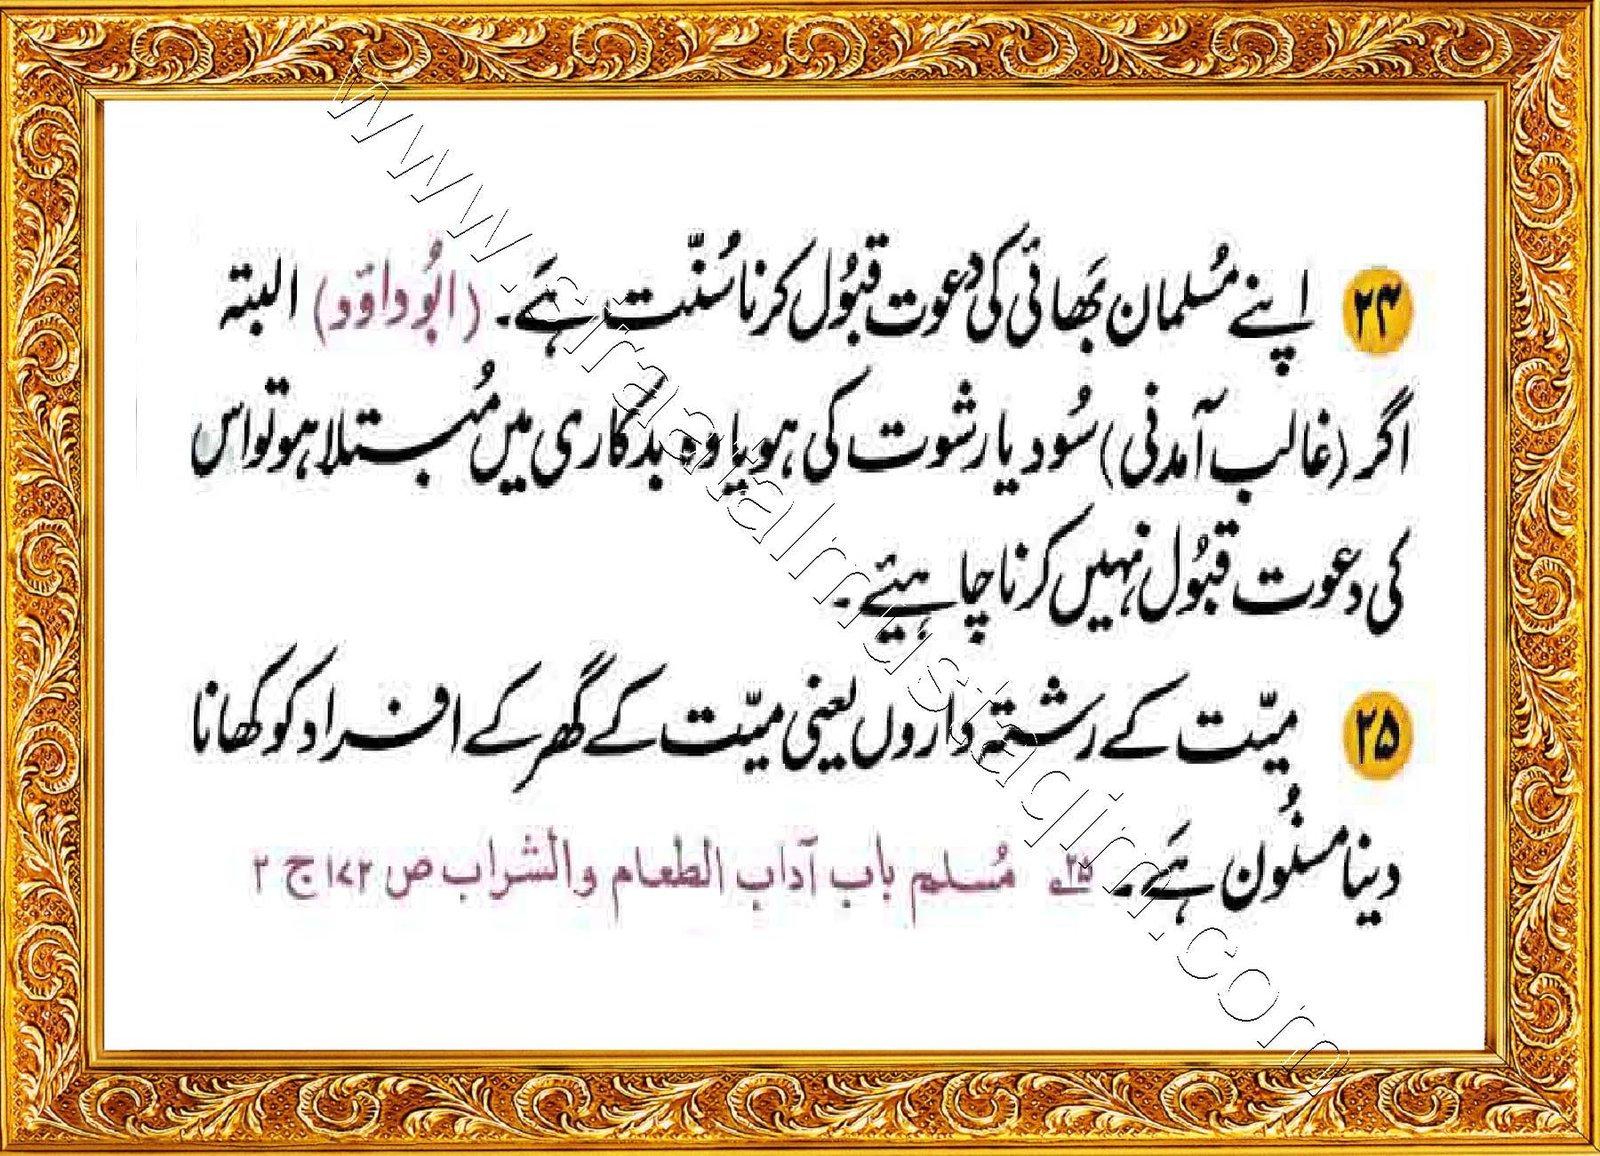 ۲۴ اپنے مُسلمان بَھائی کی دعوت قبُول کرنا سُنّت ہَے۔ (ابُوداوَد) البتہ
اگر (غالب آمدنی) سُود یا رشوت کی ہو یا وہ بدکاری میں مُبتلا ہو تو اس
کی دعوت قبُول نہیں کرنا چاہیئے۔
۲۵ میّت کے رشتہ داروں یعنی میّت کے گھر کے افراد کو کھانا
دینا مسنُون ہَے۔ ۲۵؎ مُسلم باب آداب الطعام والشراب ص ۱۷۲ ج ۲
www.siraatalmustaqim.com